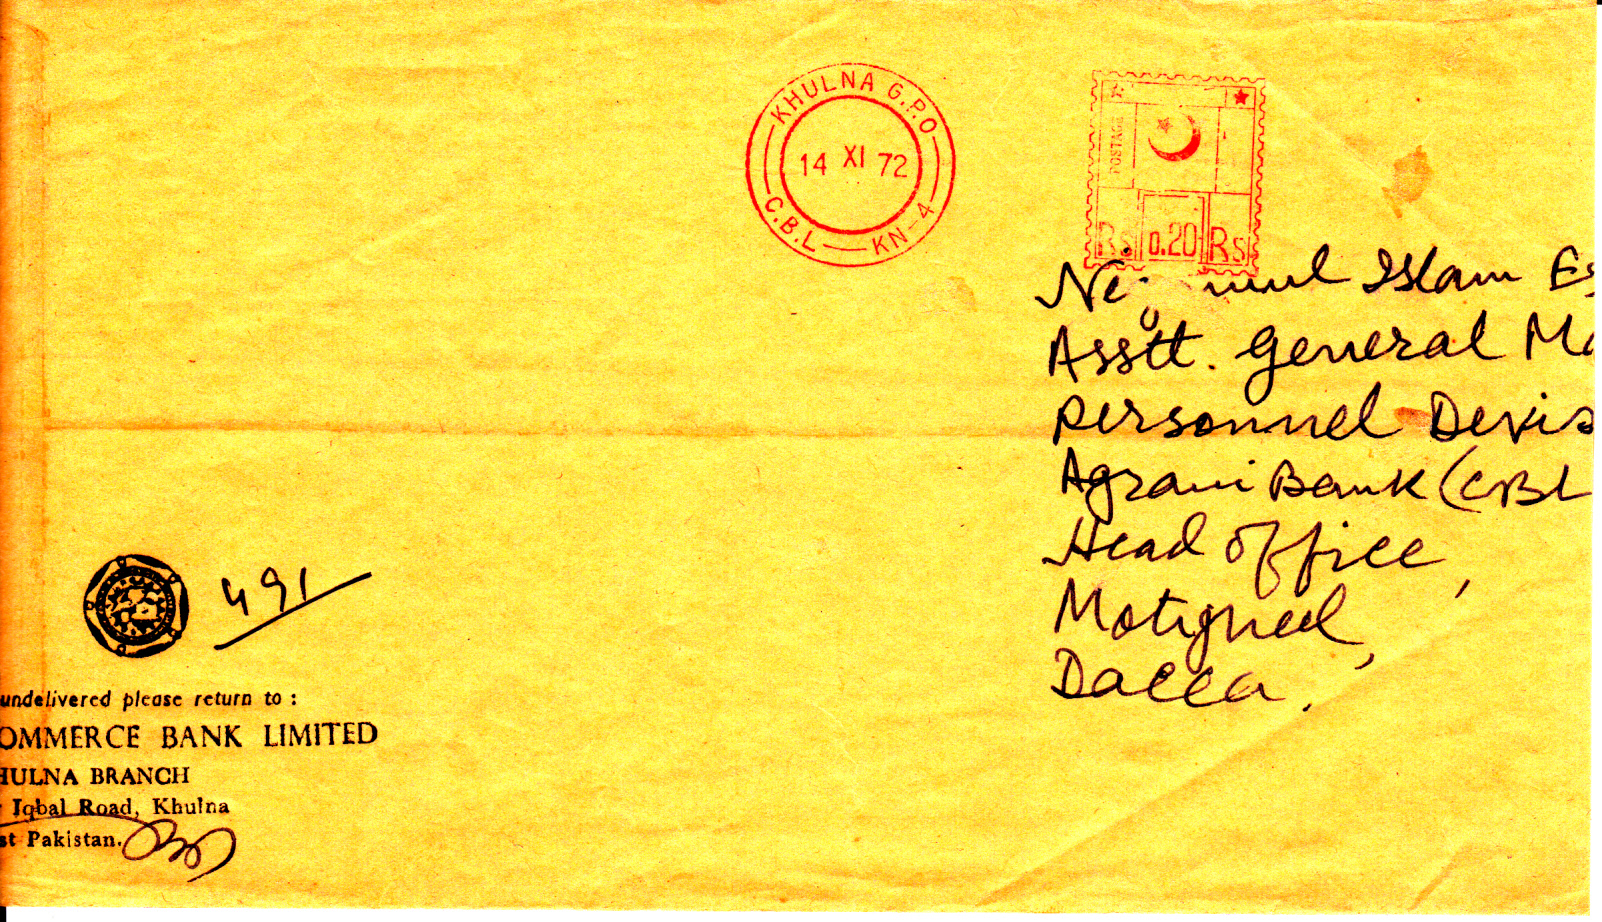 KHULNA G.P.O
14 XI 72
C.B.L KN-4
POSTAGE
Rs 0.20 Rs
Islam Es
Asstt. General Ma
Personnel Devis
Agrani Bank (CBL
Head Office,
Motijheel,
Dacca.
491
undelivered please return to :
OMMERCE BANK LIMITED
HULNA BRANCH
Iqbal Road, Khulna
st Pakistan.